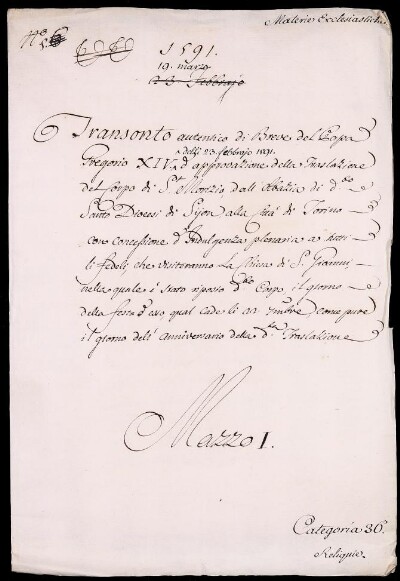 Materie Ecclesiastiche
N.º 6
1591.
19. marzo
23 Febbrajo
Transonto autentico di Breve del Papa
delli 23. febbrajo 1591.
Gregorio XIV. d'approvazione della Traslazione
del Corpo di S.t Morizio, dall'Abazia di d.º
Santo Diocesi di Sijon alla Città di Torino
con concessione d'Indulgenza plenaria a tutti
li Fedeli, che visiteranno La Chiesa di S. Gioanni
nella quale è stato riposto d.º Corpo, il giorno
della festa d'esso, qual cade li 22 7mbre, come pure
il giorno dell'anniversario della d.ta Traslazione
Mazzo I.
Categoria 36.
Reliquie.